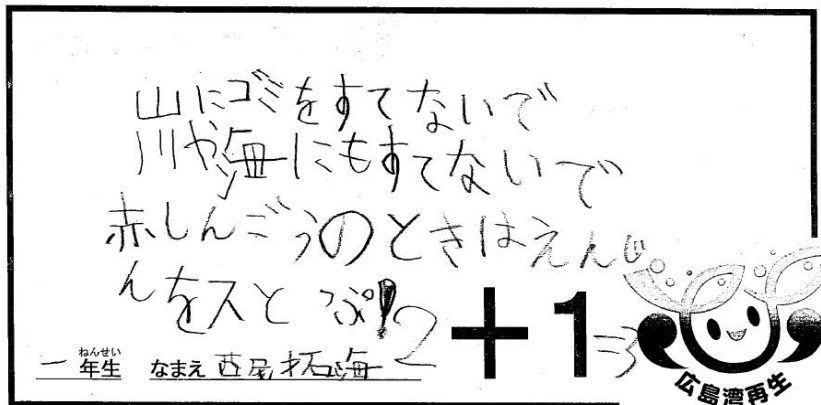 山にゴミをすてないで
川や海にもすてないで
赤しんごうのときはえんじ
んをスとっぷ!
2+1=3
一年生 なまえ 西尾拓海
ねんせい
広島湾再生